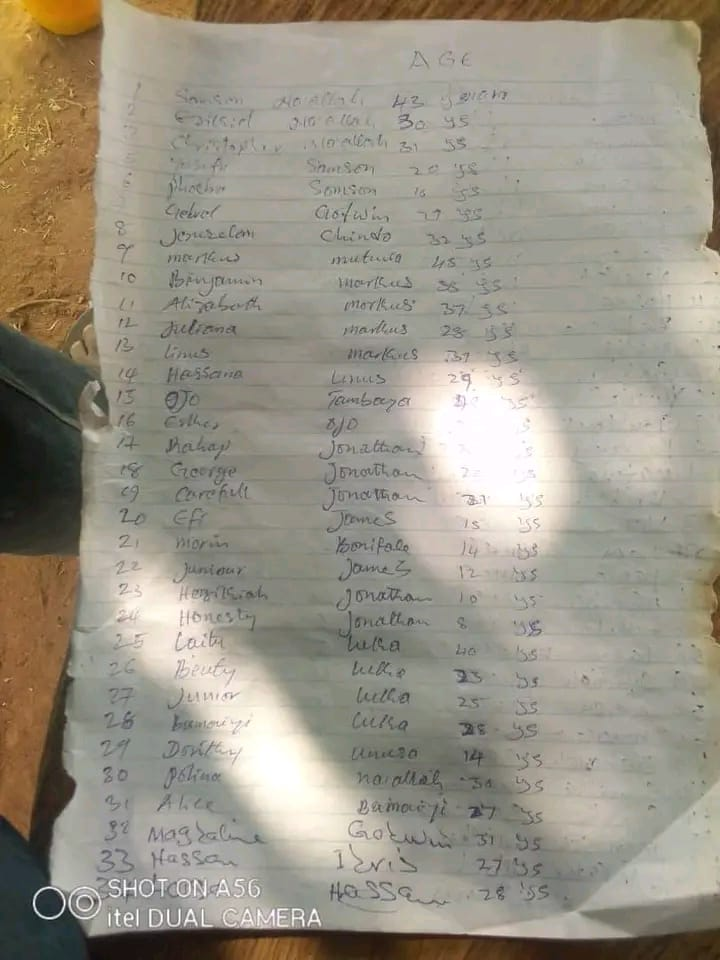 AGE
1 Samson 43 years
2 30 ys
3 Christopher 31 ys
Samson 20 ys
phoebe Samson ys
Gofwin ys
8 Jerusalem Chindo 32 ys
9 markus mutuwa 45 ys
10 Binjamin markus 35 ys
11 Alizabath markus 37 ys
12 Juliana markus 23 ys
13 Linus markus ys
14 Hassana Linus 29 ys
15 OJO Tambaya ys
16 Esther OJO ys
17 Rahap Jonathan ys
18 George Jonathan ys
19 Carefull Jonathan 21 ys
20 Efi James 15 ys
21 Bonifale 14 ys
22 Juniour James 12 ys
23 Jonathan 10 ys
24 Honesty Jonathan 8 ys
25 Laitu Lukka 40 ys
26 Beuty Lukka 23 ys
27 Junior Lukka 25 ys
28 Bamaiyi Lukka 28 ys
29 Dorithy 14 ys
30 Polina ys
31 Alice Bamaiyi 27 ys
32 Magdaline Gofwin 31 ys
33 Hassan Idris 27 ys
Hassan 28 ys
SHOT ON A56
itel DUAL CAMERA